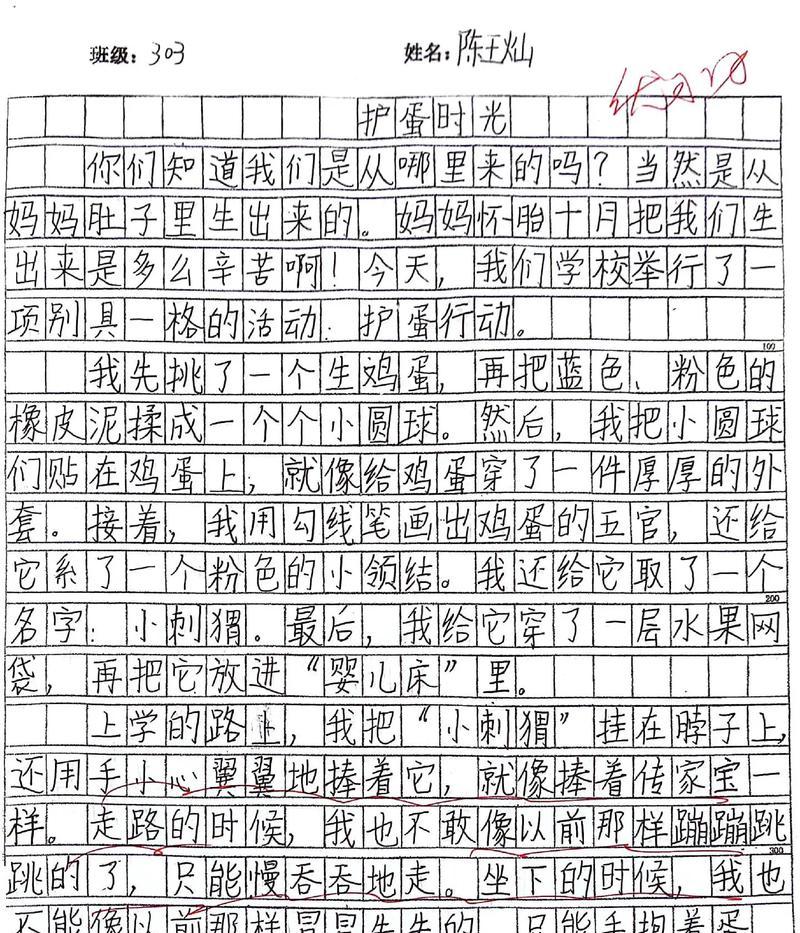 班级：303 姓名：陈王灿
护蛋时光
你们知道我们是从哪里来的吗？当然是从
妈妈肚子里生出来的。妈妈怀胎十月把我们生
出来是多么辛苦啊！今天，我们学校举行了一
项别具一格的活动：护蛋行动。
100
我先挑了一个生鸡蛋，再把蓝色、粉色的
橡皮泥揉成一个个小圆球。然后，我把小圆球
们贴在鸡蛋上，就像给鸡蛋穿了一件厚厚的外
套。接着，我用勾线笔画出鸡蛋的五官，还给
它系了一个粉色的小领结。我还给它取了一个
200
名字：小刺猬。最后，我给它穿了一层水果网
袋，再把它放进“婴儿床”里。
上学的路上，我把“小刺猬”挂在脖子上，
还用手小心翼翼地捧着它，就像捧着传家宝一
样。走路的时候，我也不敢像以前那样蹦蹦跳
300
跳的了，只能慢吞吞地走。坐下的时候，我也
不能像以前那样冒冒失失的，只能手抱着蛋